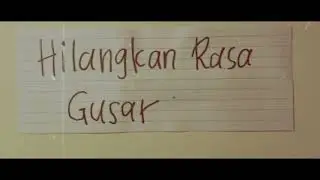 Hilangkan Rasa
Gusar